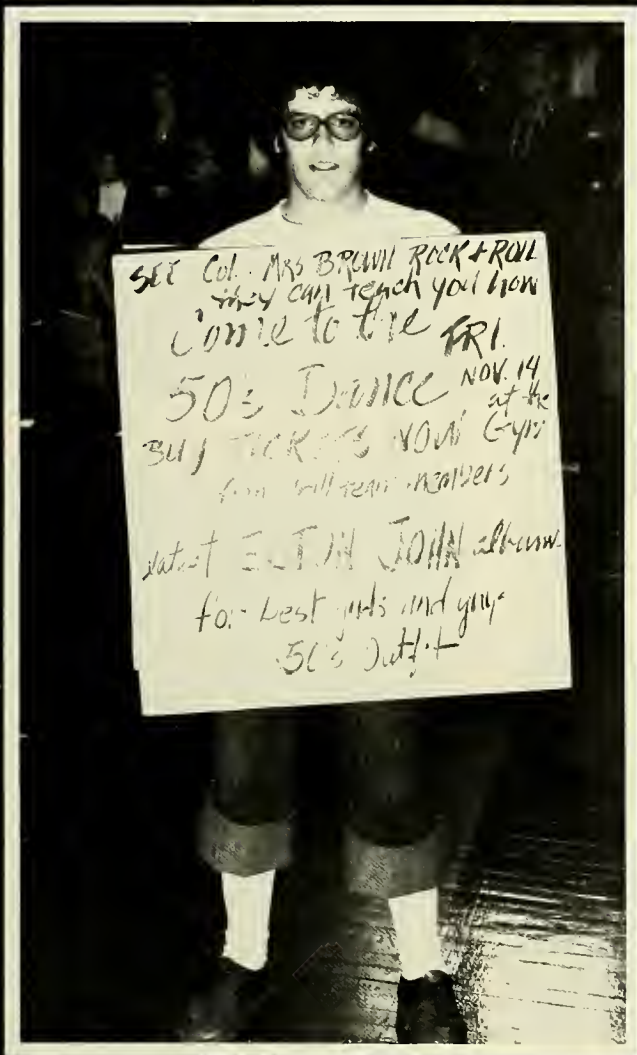 SEE Col. Mrs BROWN ROCK & ROLL
they can teach you how
Come to the FRI.
50's Dance NOV. 14
at the
BUY TICKETS NOW Gym
from drill team members
latest ELTON JOHN album
for best girls and guys
50's Outfit